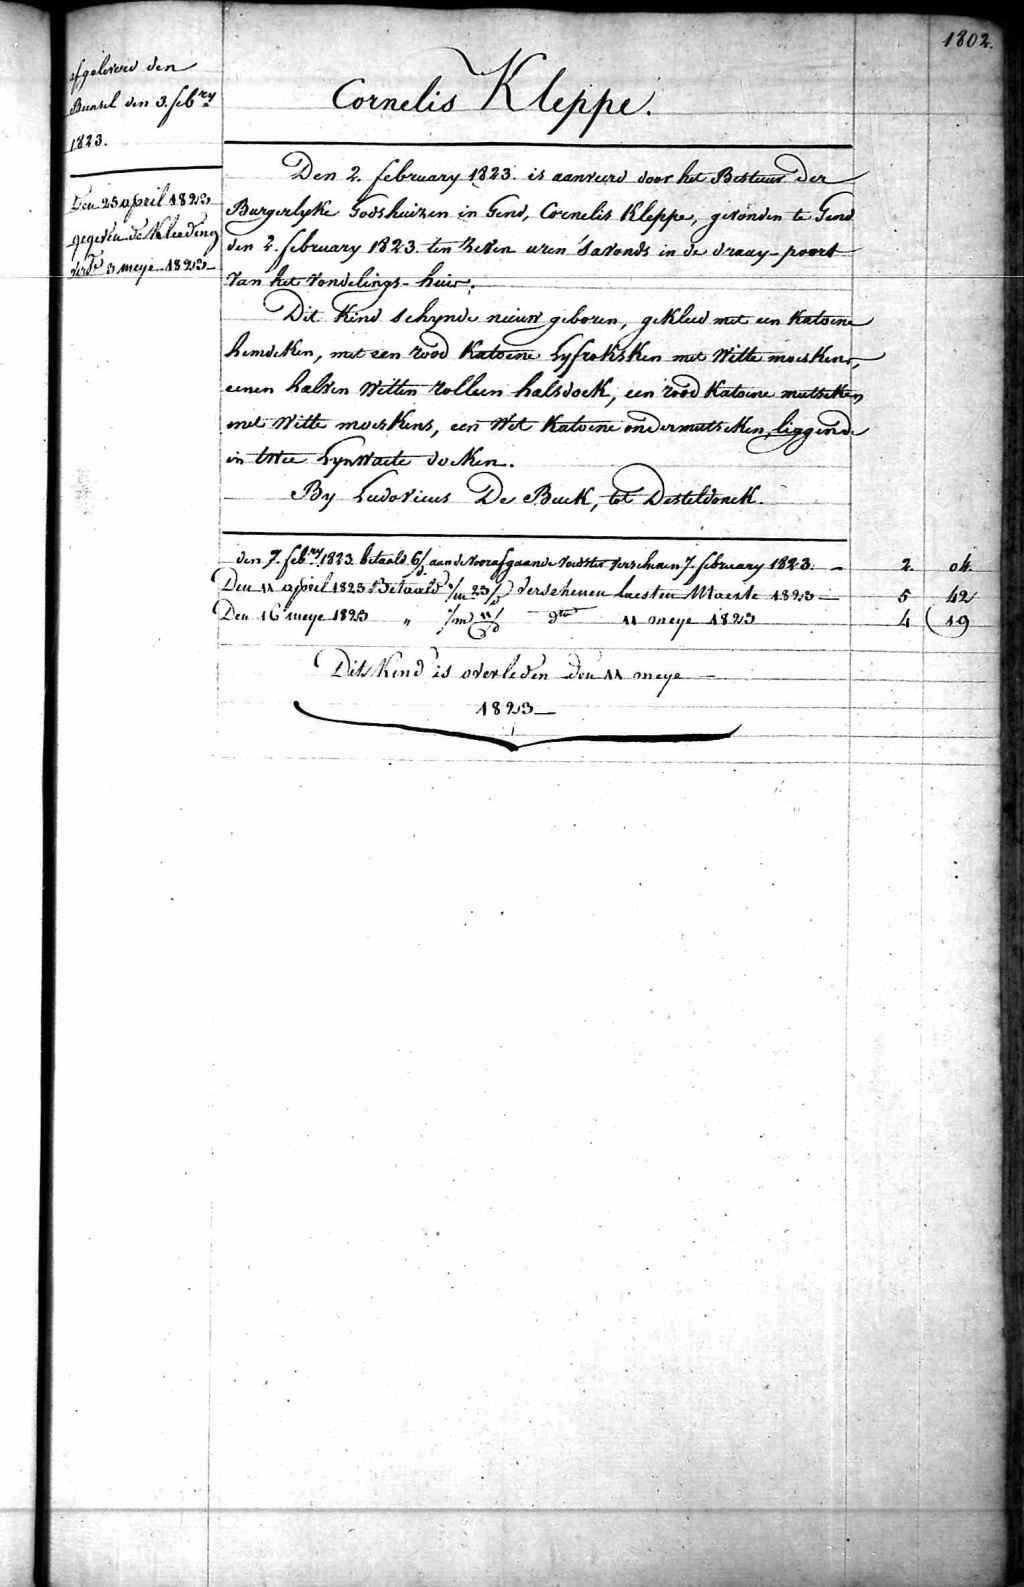 1802.
afgeleverd den
Bundel den 3. feb.ry
1823.
Den 25 april 1823
gegeven de Kleeding
verst. 3 meye 1823
Cornelis Kleppe.
Den 2. february 1823. is aanveerd door het Bestuur der
Burgerlyke Godshuizen in Gend, Cornelis Kleppe, gevonden te Gend
den 2. february 1823. ten zeven uren 'savonds in de draay-poort
van het vondelings-huis.
Dit Kind schynde nieuw geboren, gekleed met een Katoene
hemdeken, met een rood Katoene Lyfroksken met Witte moeskens,
eenen halven Witten rolleen halsdoek, een rood Katoene mutseken
met Witte moeskens, een Wit Katoene ondermutseken, liggende
in twee Lynwaete doeken.
By Ludovicus De Buck, tot Desteldonck.
den 7. feb.ry 1823. betaald 6/d. aan de voorafgaande voedster verschenen 7. february 1823. — 2. 04.
Den 11 april 1823 Betaald 1/m 23/d verschenen laesten Maerte 1823 — 5 42
Den 16 meye 1823 " 1/m 11/d dto 11 meye 1823 4 19
Dit Kind is overleden den 11 meye —
1823 —